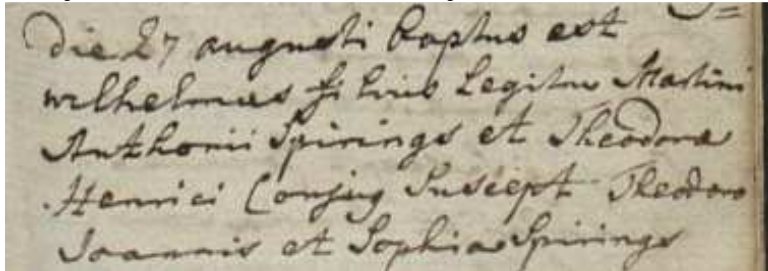 die 27 augusti baptus est
wilhelmus filius Legitmus Martini
Anthonii Spirings et Theodora
Henrici Conjug Suscept Theodoro
Joannis et Sophia Spirings